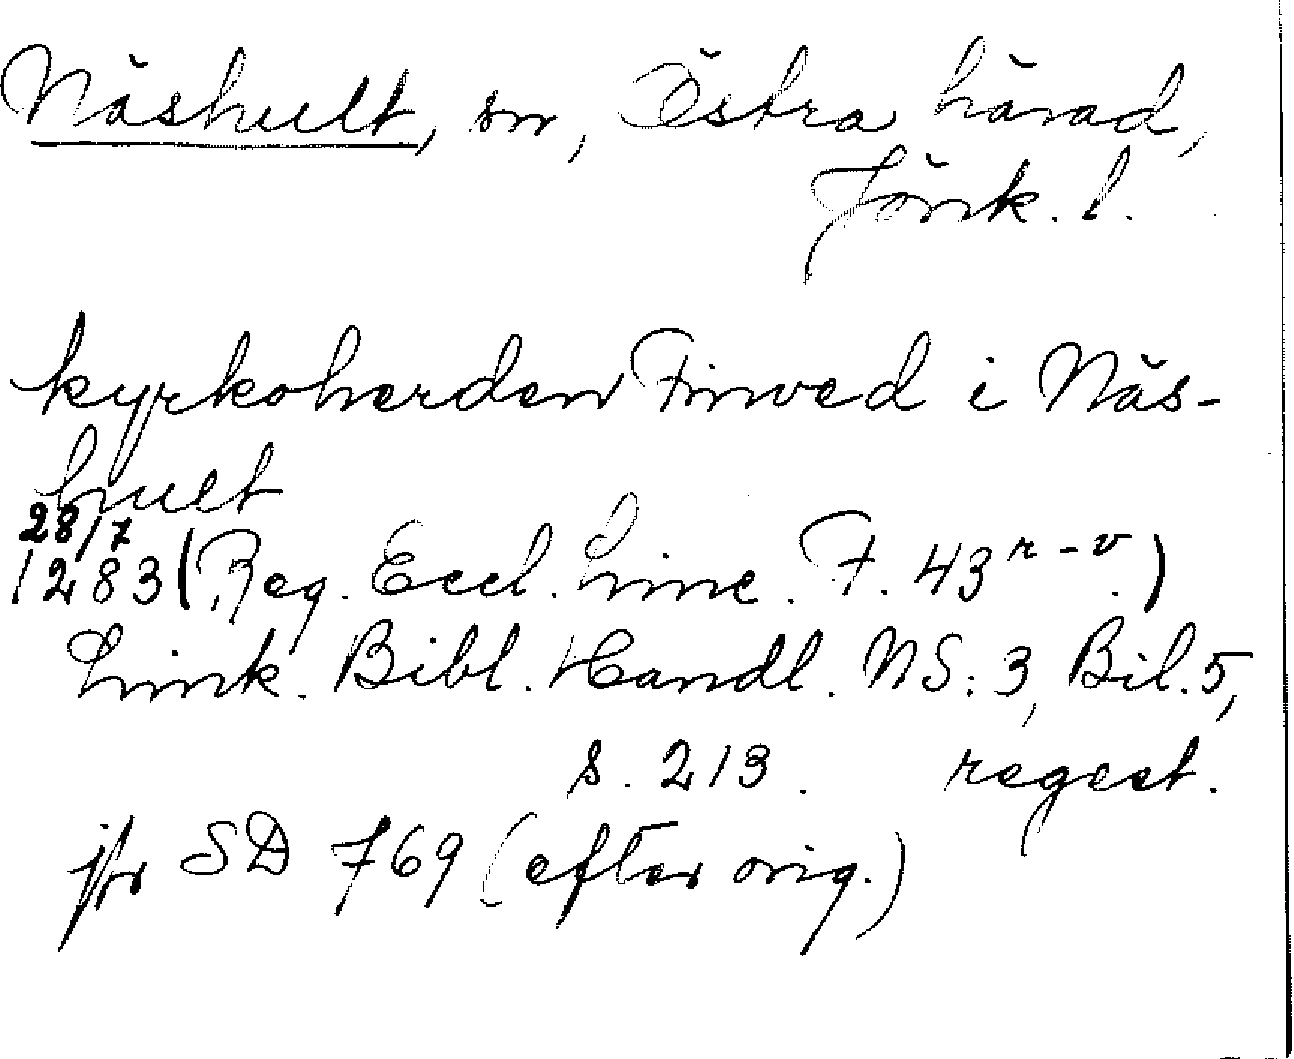 Näshult, sn, Östra härad,
Jönk. l.
kyrkoherden Finved i Näs-
hult
28/7
1283 (Reg. Eccl. Linc. F. 43 r-v.)
Link. Bibl. Handl. NS: 3, Bil. 5,
s. 213. regest.
jfr SD 769 (efter orig.)